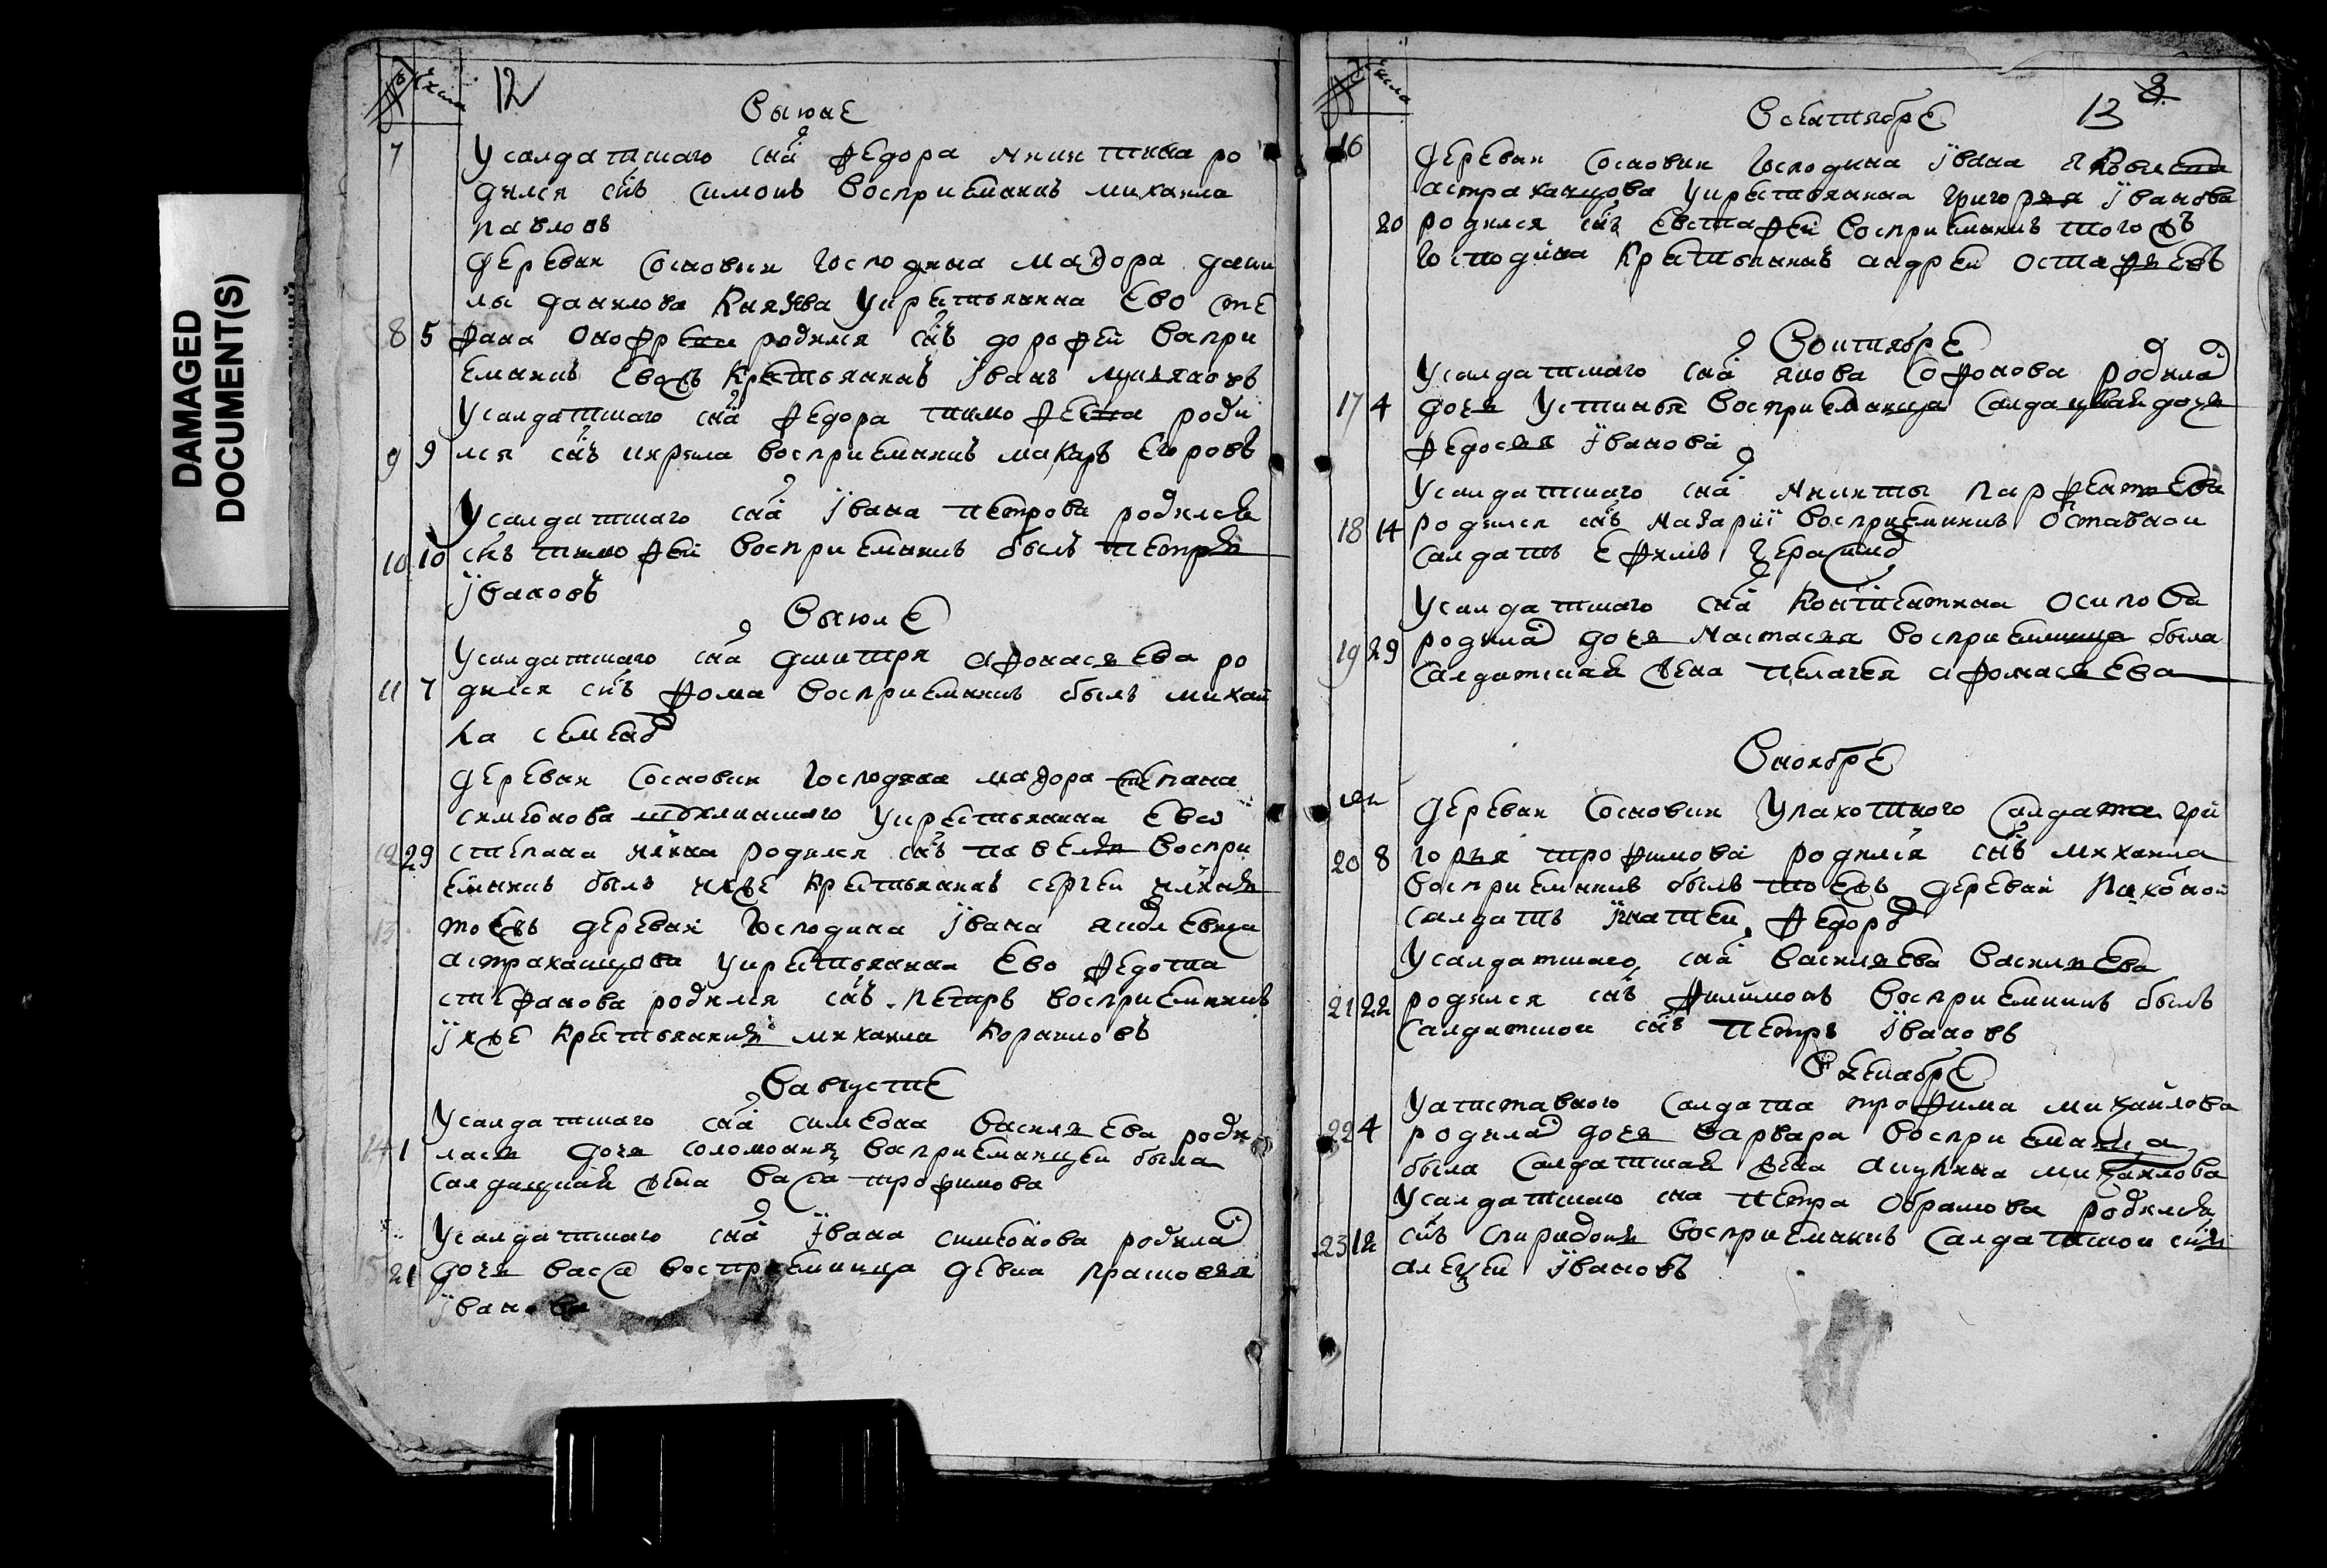 DAMAGED
DOCUMENT(S)
№ числа
12
В июне
7
У салдатцкаго сна Федора Никитина ро
дился снъ Симонъ восприемникъ михаила
павловъ
Деревни Сосновки господина маэора дани
лы данилова Князева у крестьянина ево сте
8 5 фана онофреи родился снъ дорофеи воспри
емникъ евожъ крестьянинъ Iванъ
У салдатцкаго сна Федора тимофеева роди
9 9 лся снъ кирила восприемникъ макаръ Егоровъ
У салдатцкаго сна Iвана петрова родился
10 10 снъ тимофеи восприемникъ былъ петръ
Iвановъ
В июле
У салдатцкаго сна Дмитрия афонасьева ро
11 7 дился снъ Фома восприемникъ былъ михаи
ла семенов
Деревни Сосновки господина маэора степана
симеонова у крестьянина ево
12 29 степана родился снъ воспри
емникъ былъ крестьянинъ сергеи
13 тоежъ деревни господина Iвана яковлевича
астраханцова у крестьянина ево федота
стефанова родился снъ петръ восприемникъ
крестьянинъ михаила
В августе
У салдатцкаго сна симеона василева роди
14 1 лася дочь соломония восприемницеи была
салдацкая жена васса трофимова
У салдатцкаго сна Iвана симеонова родилас
15 21 дочь васса восприемница девка прасковия
Iванова
№ числа
13 8
В сентябре
16
Деревни Сосновки господина Iвана яковлева
астраханцова у крестьянина григорья Iванова
20 родился снъ евстафеи восприемникъ тогожъ
господина крестьянинъ андреи остафьевъ
В октябре
У салдатцкаго сна якова Софонова родилас
17 4 дочь Устинья восприемница салдацкая дочь
федосья Iванова
У салдатцкаго сна Никиты парфентьева
18 14 родился снъ Назариi восприемникъ отставнои
салдатъ Ефимъ герасимов
У салдатцкаго сна Констентина осипова
19 29 родилас дочь Настасья восприемница была
салдатская жена пелагея афонасьева
В ноябре
Деревни Сосновки у пахотного салдата гри
20 8 горья трофимова родился снъ михаила
восприемникъ былъ тоежъ деревни пахотнои
салдатъ Iгнатеи Федоров
У салдатцкаго сна Василева Василева
21 22 родился снъ Филимонъ восприемникъ былъ
салдатцкои снъ петръ Iвановъ
В декабре
У атставного салдата трофима михаилова
22 4 родилас дочь варвара восприемница
была салдатцкая жена акулина михаилова
У салдатцкаго сна петра обрамова родился
23 12 снъ Спиридонъ восприемникъ салдатцкои снъ
алексеи Iвановъ